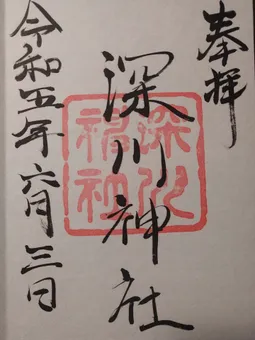 奉拝
深川神社
深川神社
令和五年六月三日